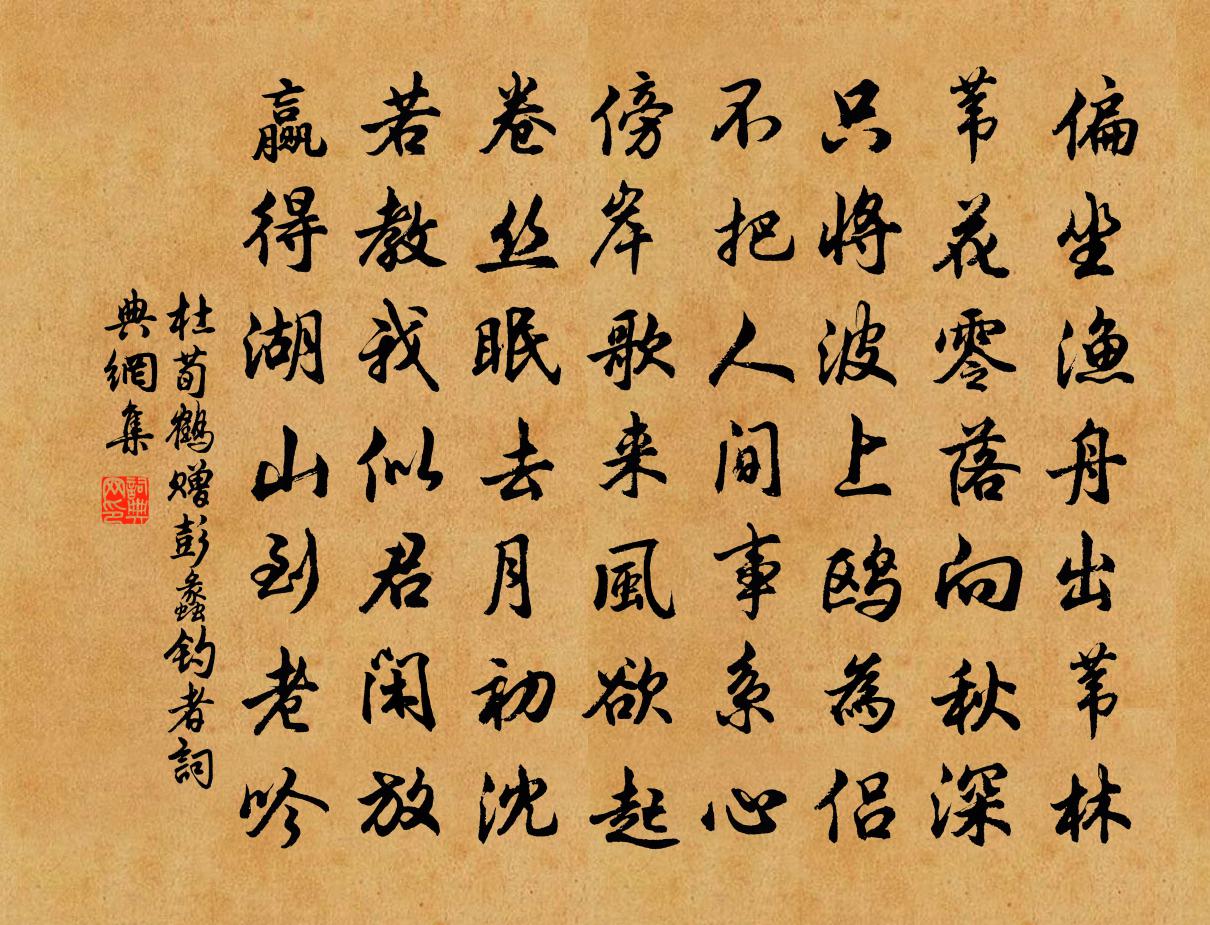 偏坐渔舟出苇林
苇花零落向秋深
只将波上鸥為侣
不把人间事系心
傍岸歌来風欲起
卷丝眠去月初沈
若教我似君闲放
赢得湖山到老吟
杜荀鹤赠彭蠡钓者詞
典網集
詞典网印